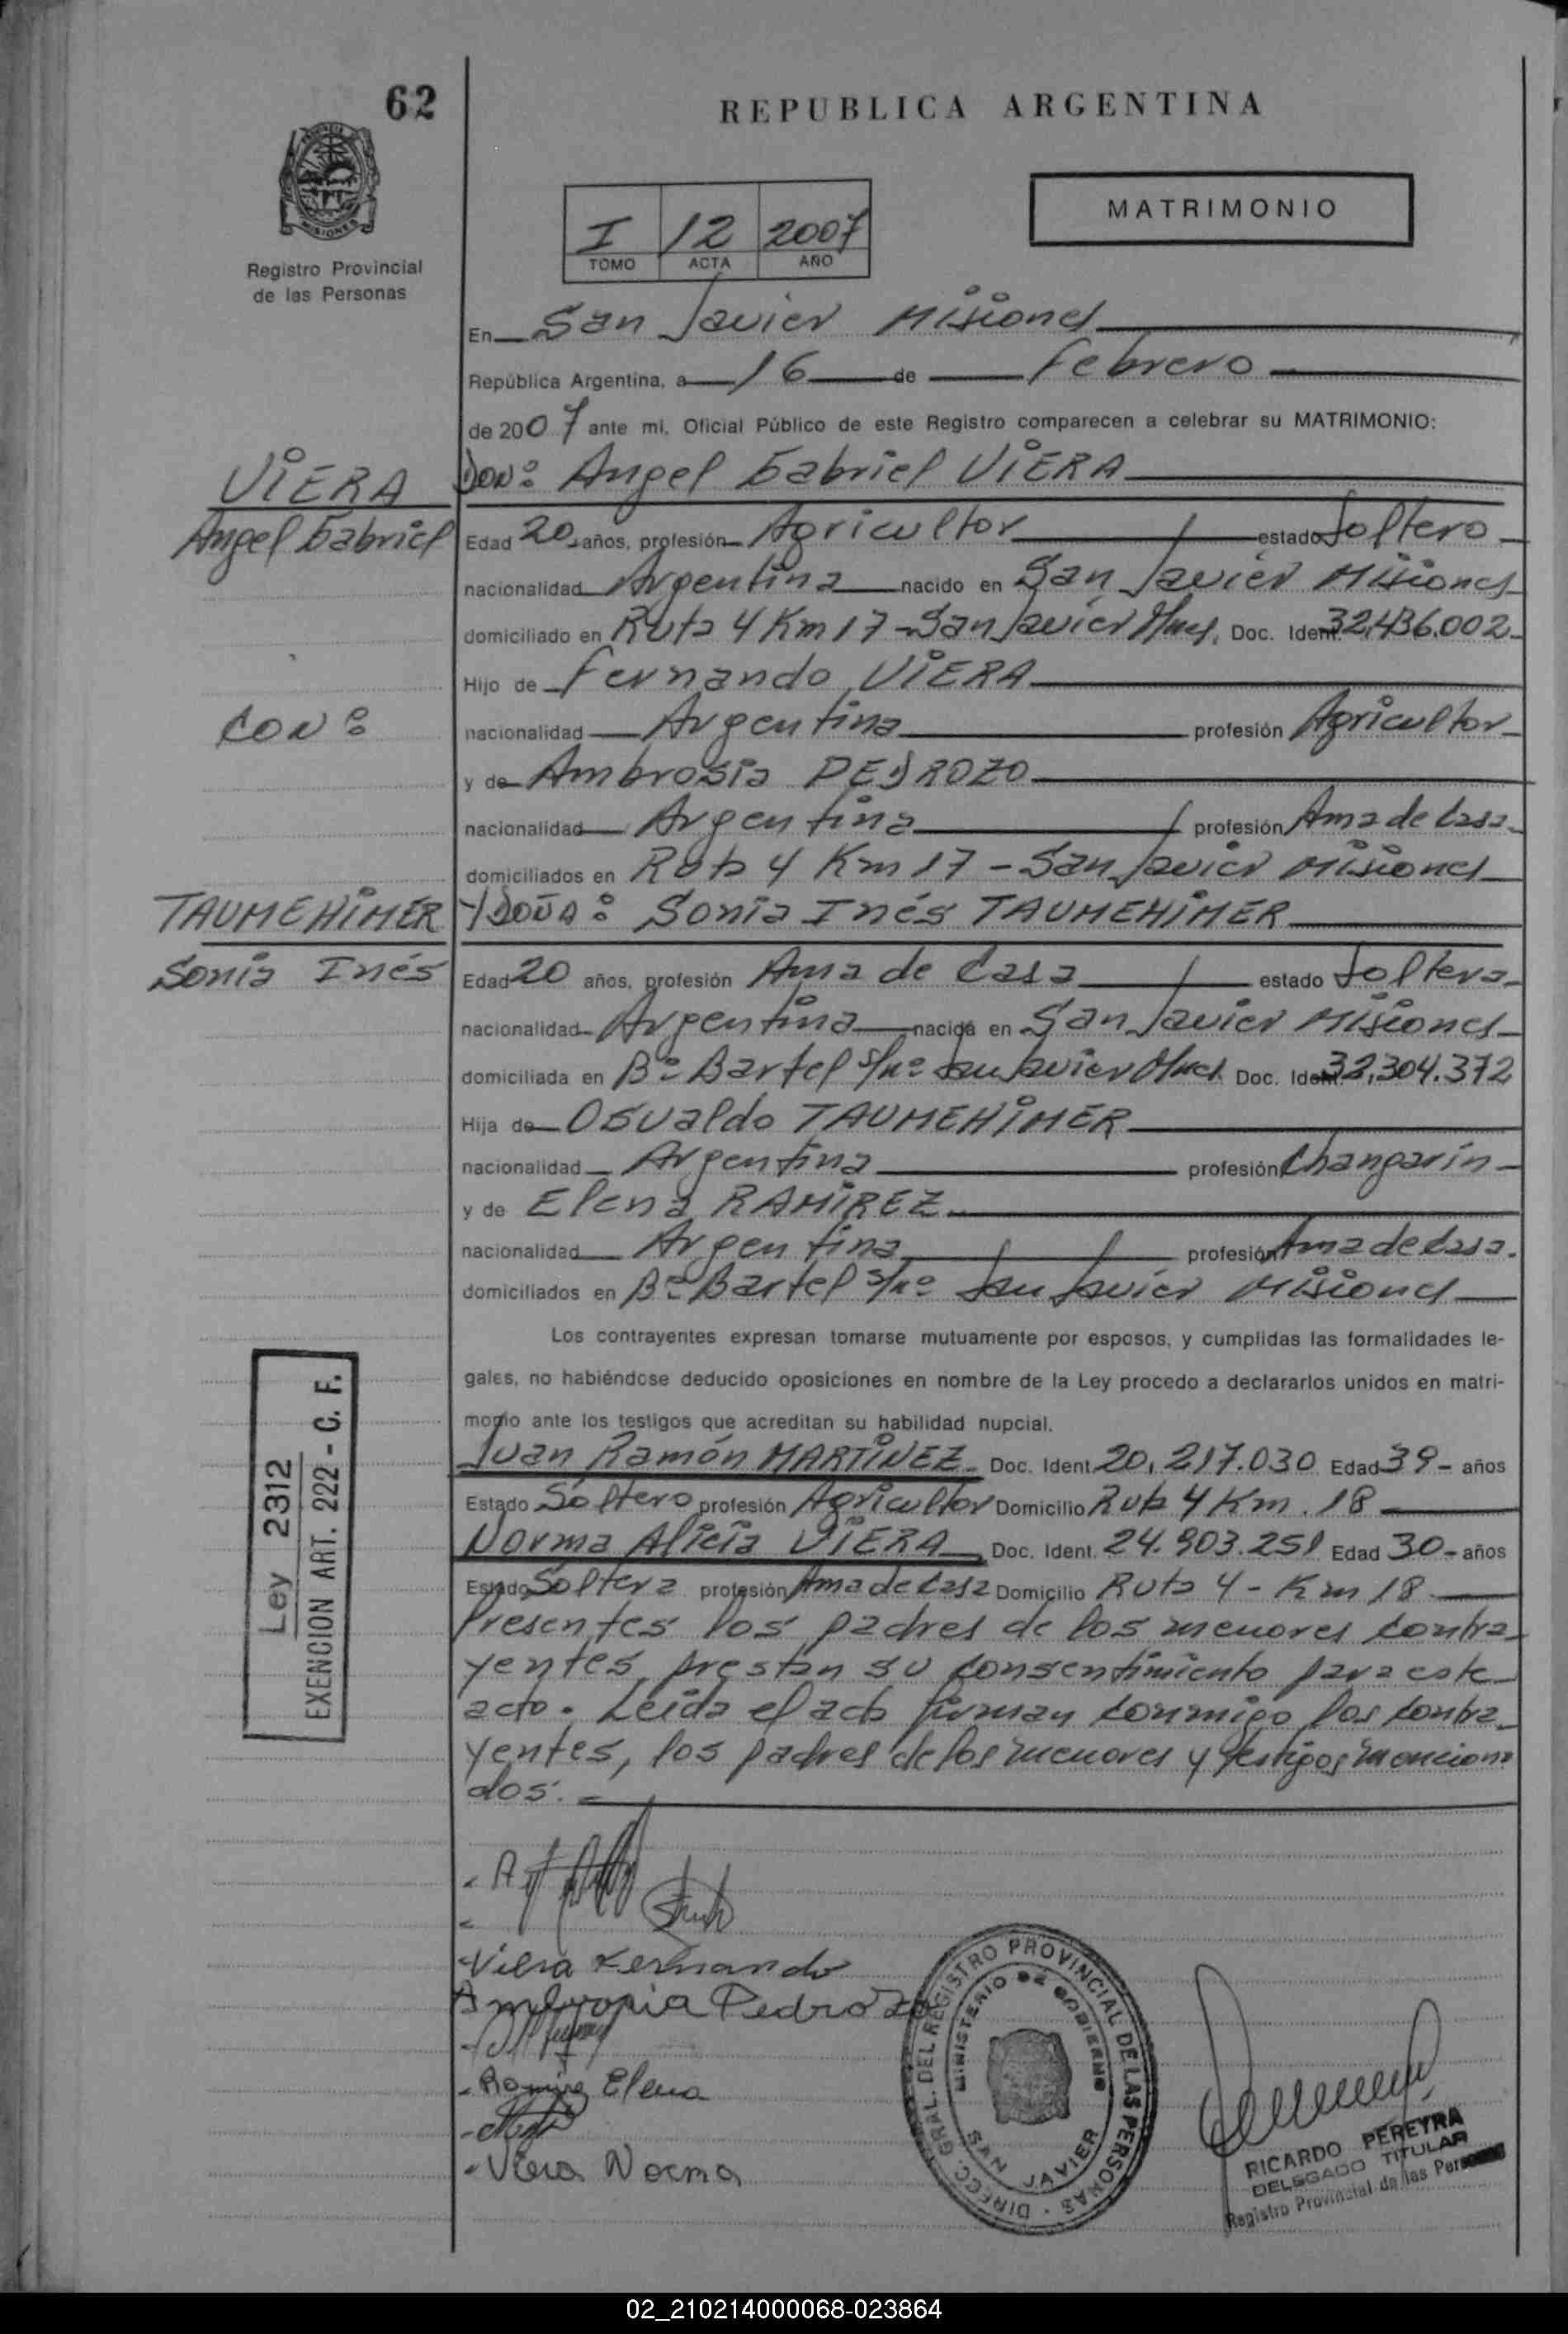 62
REPUBLICA ARGENTINA
PROVINCIA DE
MISIONES
Registro Provincial
de las Personas
I 12 2007
TOMO ACTA AÑO
MATRIMONIO
En San Javier Misiones
República Argentina, a 16 de Febrero
de 2007 ante mi, Oficial Público de este Registro comparecen a celebrar su MATRIMONIO:
VIERA
Angel Gabriel
DON: Angel Gabriel VIERA
Edad 20 años, profesión Agricultor estado Soltero
nacionalidad Argentina nacido en San Javier Misiones
domiciliado en Ruta 4 Km 17 - San Javier Mnes. Doc. Ident. 32.436.002
Hijo de Fernando VIERA
CON:
nacionalidad Argentina profesión Agricultor
y de Ambrosia PEDROZO
nacionalidad Argentina profesión Ama de Casa
domiciliados en Ruta 4 Km 17 - San Javier Misiones
TAUMEHIMER
Sonia Inés
Y DOÑA: Sonia Inés TAUMEHIMER
Edad 20 años, profesión Ama de Casa estado Soltera
nacionalidad Argentina nacida en San Javier Misiones
domiciliada en Bº Bartel s/nº San Javier Mnes Doc. Ident. 32.304.372
Hija de Osvaldo TAUMEHIMER
nacionalidad Argentina profesión Changarín
y de Elena RAMIREZ
nacionalidad Argentina profesión Ama de Casa.
domiciliados en Bº Bartel s/nº San Javier Misiones
Los contrayentes expresan tomarse mutuamente por esposos, y cumplidas las formalidades le-
gales, no habiéndose deducido oposiciones en nombre de la Ley procedo a declararlos unidos en matri-
monio ante los testigos que acreditan su habilidad nupcial.
Juan Ramón MARTINEZ Doc. Ident. 20.217.030 Edad 39 - años
Estado Soltero profesión Agricultor Domicilio Ruta 4 Km. 18
Norma Alicia VIERA Doc. Ident. 24.903.251 Edad 30 - años
Estado Soltera profesión Ama de Casa Domicilio Ruta 4 - Km 18
Presentes los padres de los menores contra-
yentes prestan su consentimiento para este
acto. Leída el acta firman conmigo los contra-
yentes, los padres de los menores y testigos menciona
dos. -
Ley 2312
EXENCION ART. 222 - C. F.
Viera Fernando
Ambrosia Pedrozo
Ramirez Elena
Viera Norma
DIRECC. GRAL. DEL REGISTRO PROVINCIAL DE LAS PERSONAS
MINISTERIO DE GOBIERNO
SAN JAVIER
RICARDO PEREYRA
DELEGADO TITULAR
Registro Provincial de las Personas
02_210214000068-023864